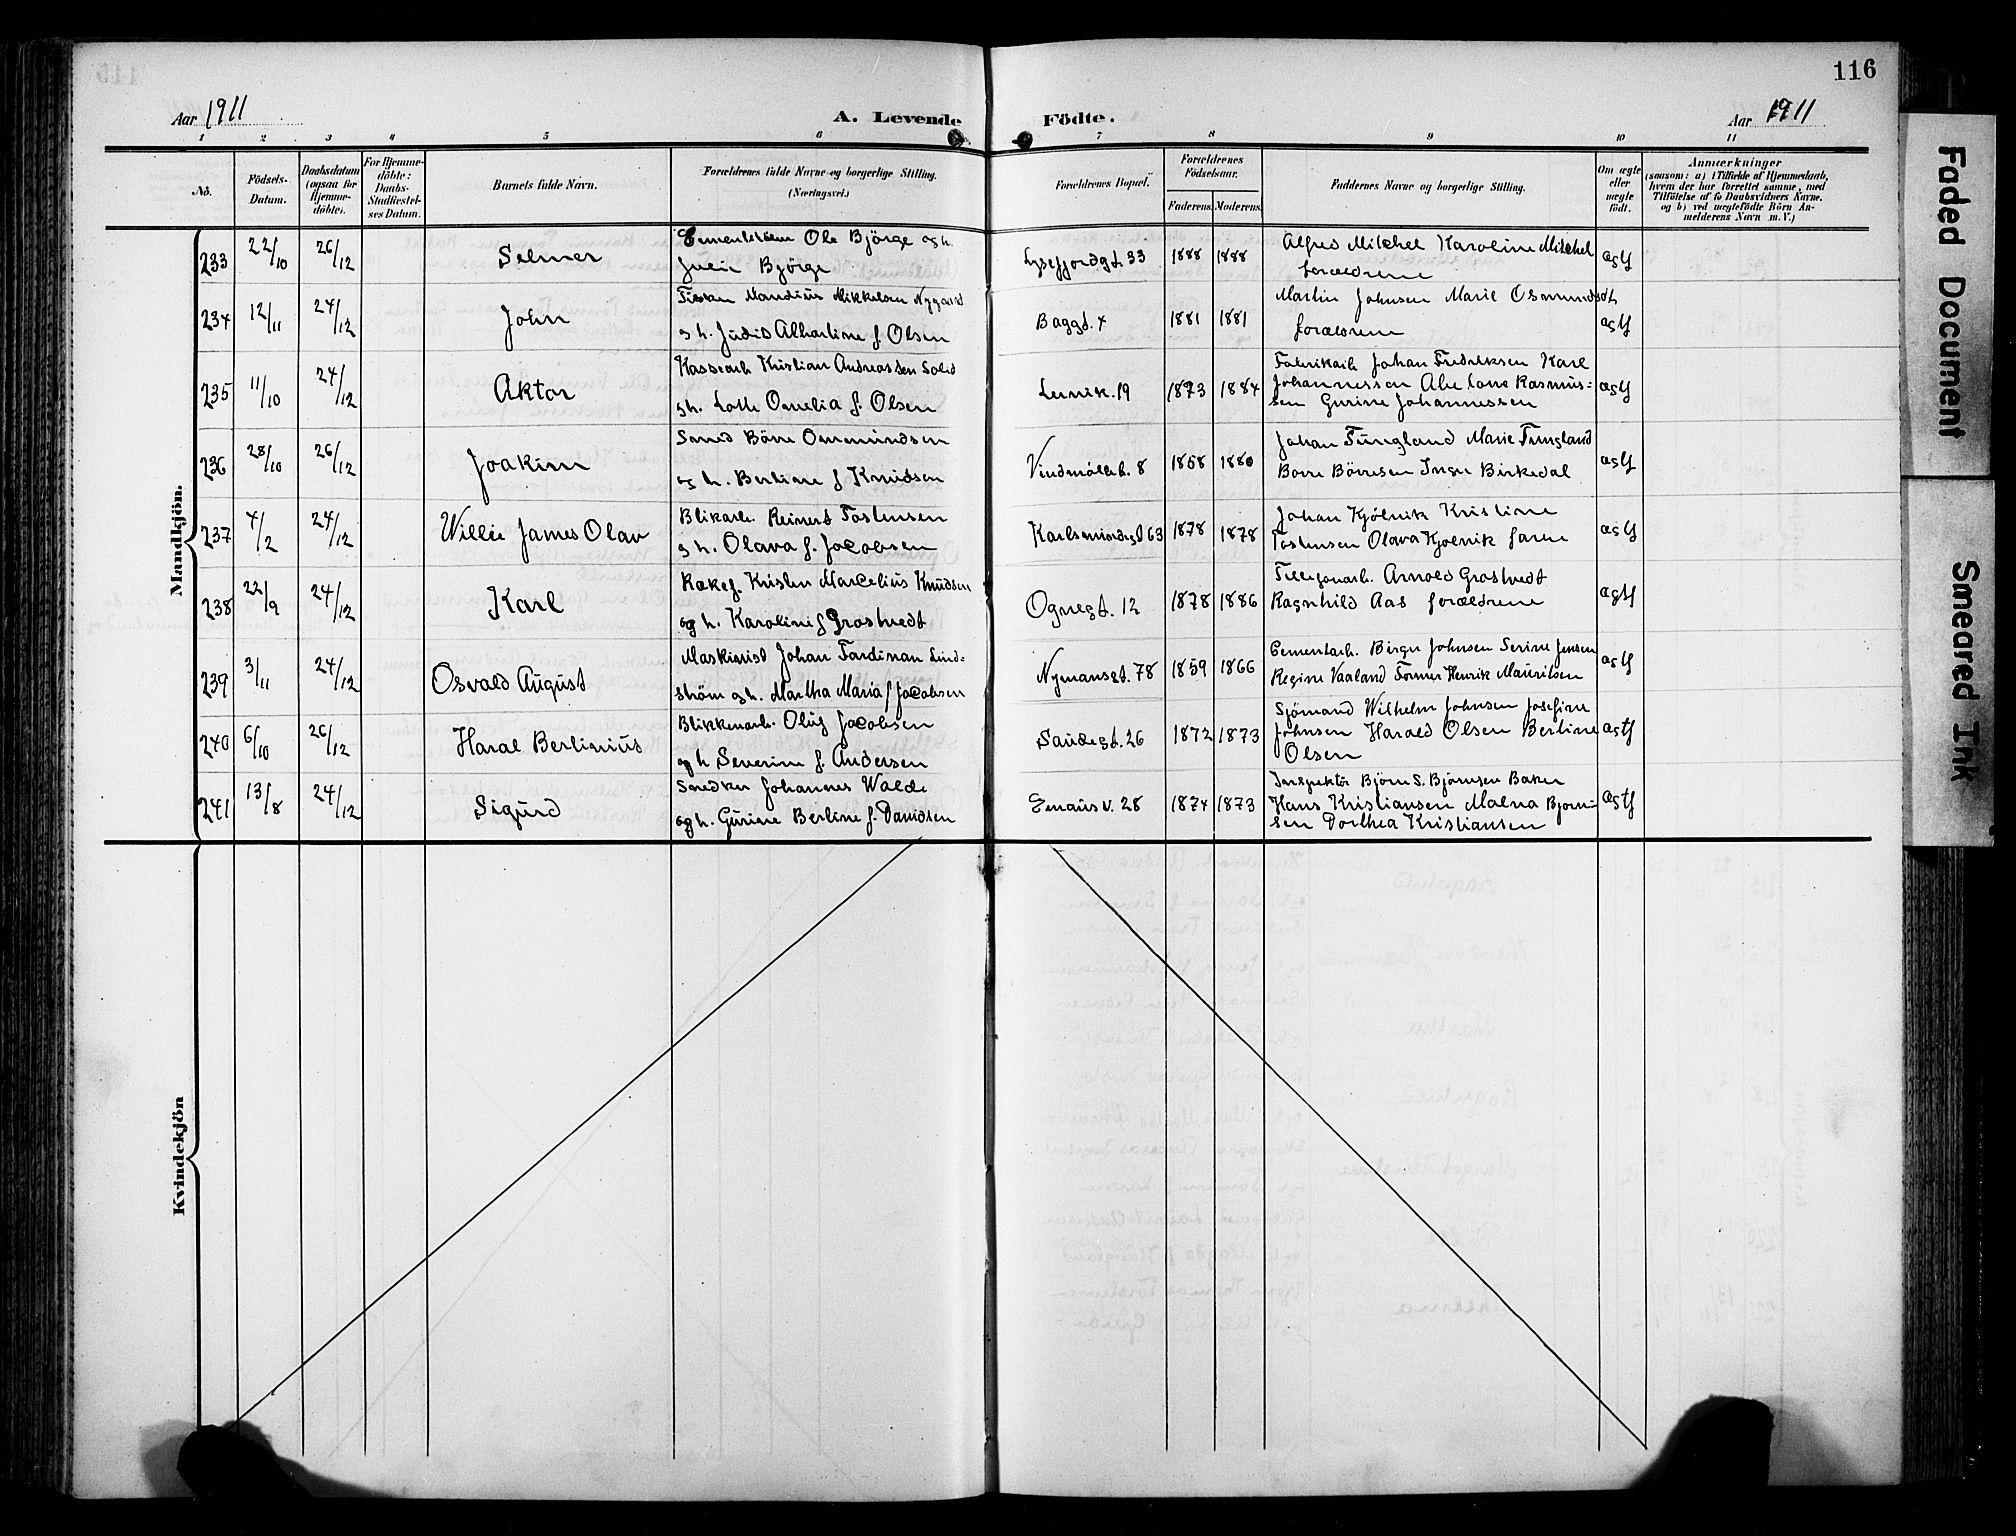 116
Aar 1911
A. Levende Födte.
Aar 1911
1 2 3 4 5 6 7 8 9 10 11
No.
Födsels-
Datum.
Daabsdatum
(ogsaa for
Hjemme-
döbte).
For Hjemme-
döbte:
Daabs-
Stadfæstel-
ses Datum.
Barnets fulde Navn.
Forældrenes fulde Navne og borgerlige Stilling.
(Næringsvei.)
Forældrenes Bopæl.
Forældrenes
Födselsaar.
Faderens. Moderens.
Faddernes Navne og borgerlige Stilling.
Om ægte
eller
uægte
födt.
Anmærkninger
(saasom: a) i Tilfælde af Hjemmedaab,
hvem der har forrettet samme, med
Tilföielse af to Daabsvidners Navne,
og b) ved uægtefödte Börn An-
melderens Navn m. V.)
Mandkjön.
233 22/10 26/12 Selmer
Ole Björge og h.
Julie Björge
Lysefjordgt. 33 1888 1888
Alfred Mitchel Karoline Mitchel
forældrene
ægtf
234 12/11 24/12 John
Mandius Mikkelsen Nygaard
og h. Judid Albartine f. Olsen
Baggt. 4 1881 1881
Martin Johnsen Marie Osmundsdt.
forældrene
ægtf
235 11/10 24/12 Aktor
Kassearb. Kristian Andreassen Solid
og h. Lotte Omelia f. Olsen
Lervik. 19 1873 1884
Fabrikarb. Johan Fredriksen Karl
Johannessen Abelone Rasmus-
sen Gurine Johannessen
ægtf
236 28/10 26/12 Joakim
Smed Börre Ommundsen
og h. Bertine f Knudsen
Vindmölleb. 8 1858 1880
Johan Tungland Marie Tungland
Borre Börresen Inga Birkedal
ægtf
237 4/2 24/12 Willie James Olav
Blikarb. Reinert Tostensen
og h. Olava f. Jacobsen
Karlsmindegt 63 1878 1878
Johan Kjölvik Kristine
Tostensen Olava Kjolvik faren
ægtf
238 22/9 24/12 Karl
Kakef. Kristen Marcelius Knudsen
og h. Karoline f Grostvedt
Ognegt. 12 1878 1886
Arnold Grostvedt
Ragnhild Aas forældrene
ægtf
239 3/11 24/12 Osvald August
Maskinist Johan Fardinan Lind-
ström og h. Martha Maria f Jacobsen
Nymansgt. 78 1859 1866
Cementarb. Birger Johnsen Serine Jensen
Regine Vaaland Former Henrik Mauritsen
ægtf
240 6/10 26/12 Haral Bertinius
Blikkenarb. Oluf Jacobsen
og h Severine f. Andersen
Saudegt. 26 1872 1873
Sjömand Wilhelm Johnsen Josefine
Johnsen Harald Olsen Bertine
Olsen
ægtf
241 13/8 24/12 Sigurd
Snedker Johannes Walde
og h. Gurine Bertine f. Davidsen
Emaus v. 28 1874 1873
Inspektör Björn S. Björnsen Baker
Hans Kristiansen Malna Bjorn-
sen Dorthea Kristiansen
ægtf
Kvindekjön
Faded Document
Smeared Ink